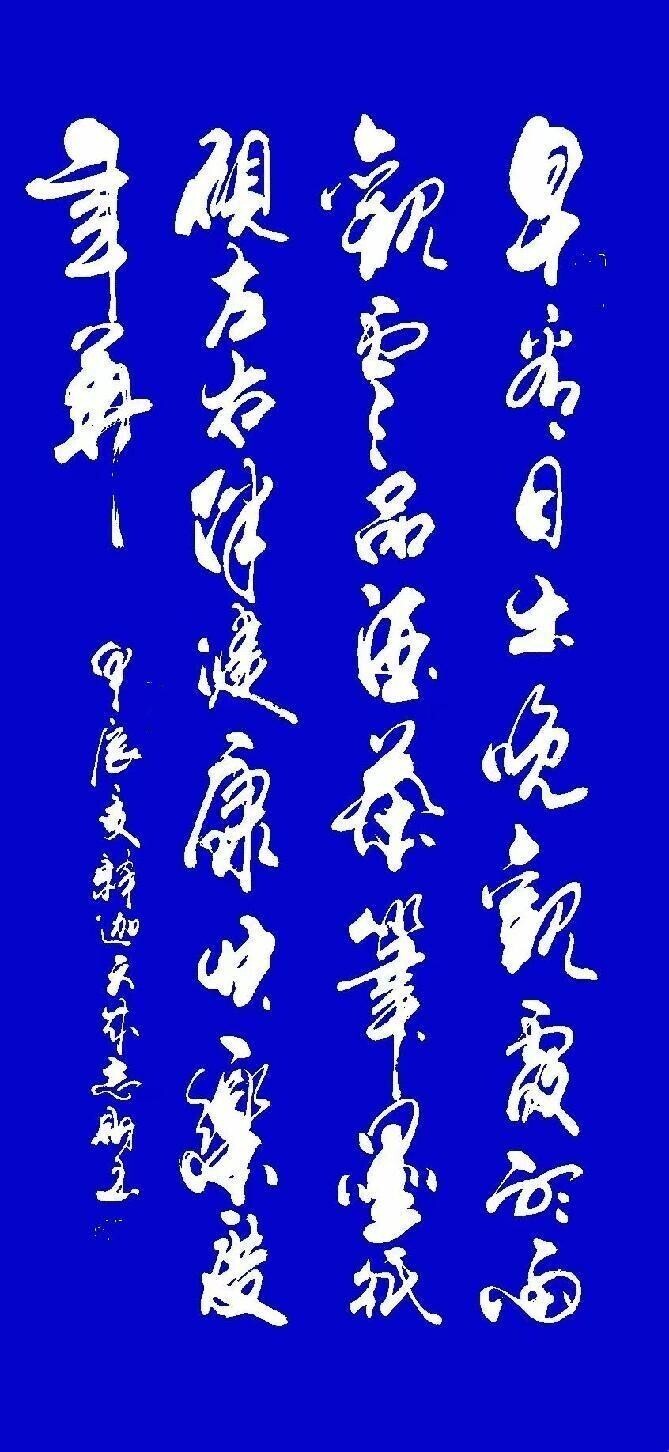 早看日出晚觀霞聽雨
觀雲品酒茶筆墨紙
硯左右伴健康快樂度
年華
甲辰夏釋迦天林志明